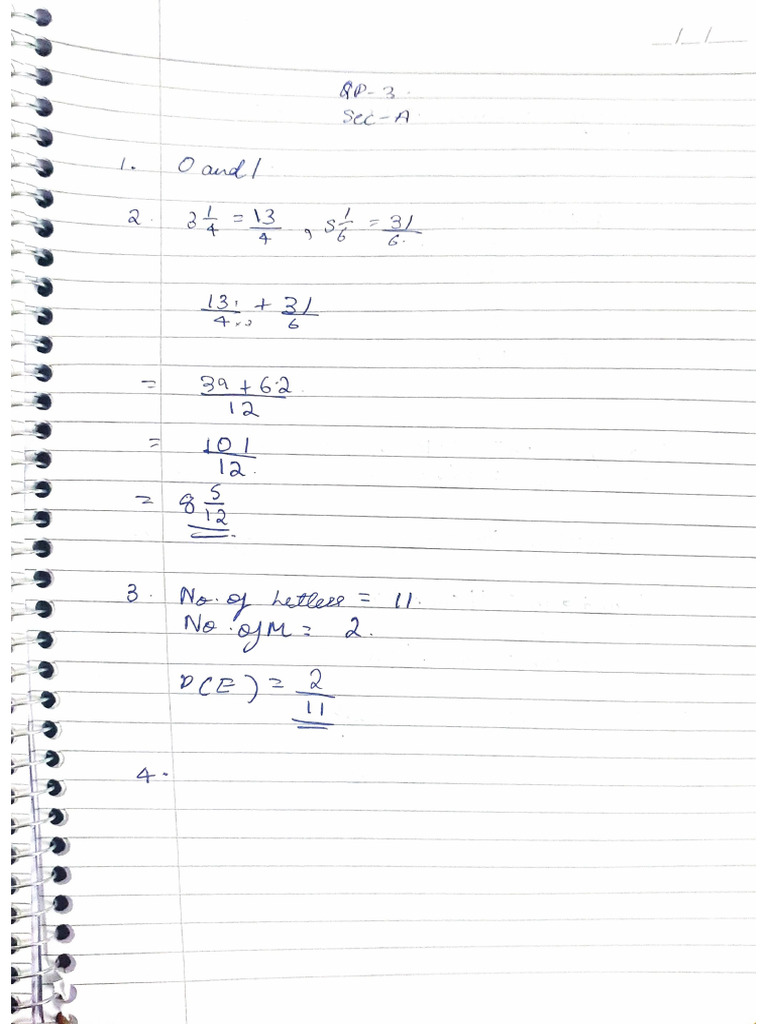 _/_/_
QP-3.
Sec-A
1. 0 and 1
2. 3 1/4 = 13/4 , 5 1/6 = 31/6.
13/4 + 31/6
= 39+62/12
= 101/12.
= 8 5/12.
3. No. of Letters = 11.
No. of M = 2.
P(E) = 2/11
4.